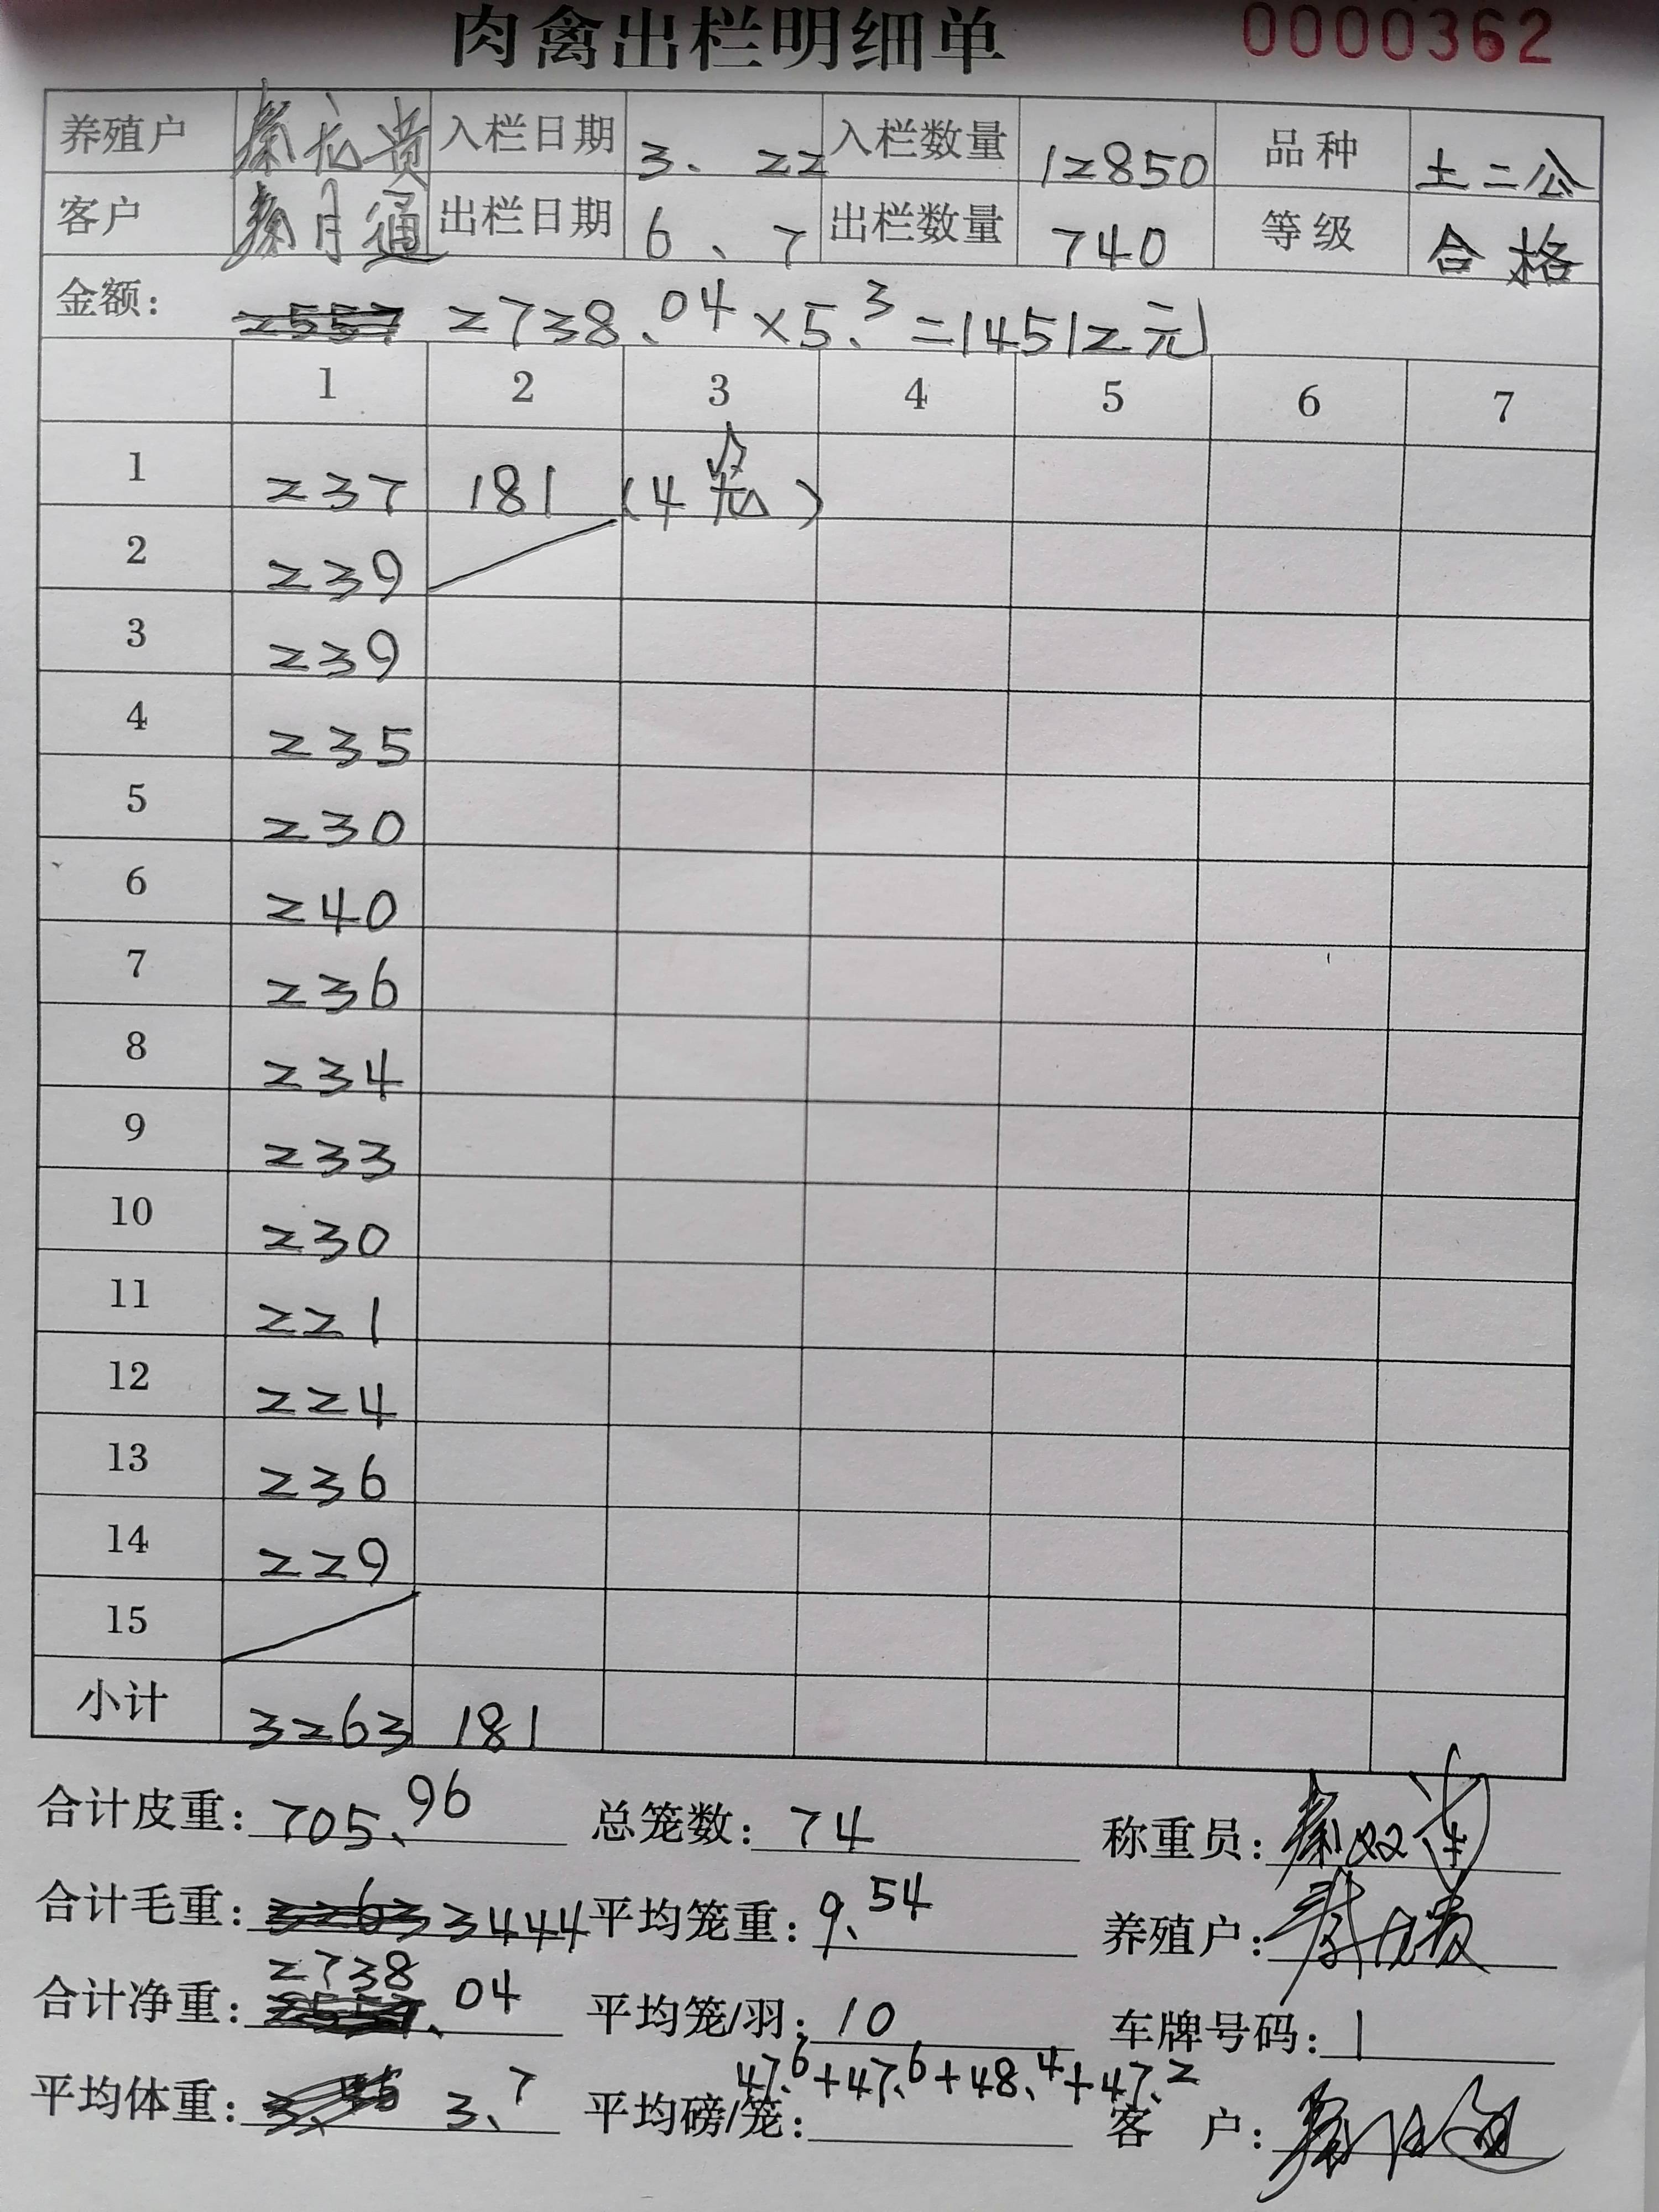 肉禽出栏明细单 0000362
养殖户 秦贵 入栏日期 3、22 入栏数量 12850 品种 土二公
客户 秦月通 出栏日期 6、7 出栏数量 740 等级 合格
金额： 2557 2738.04×5.3=14512元
1 2 3 4 5 6 7
1 237 181 (4笼)
2 239
3 239
4 235
5 230
6 240
7 236
8 234
9 233
10 230
11 221
12 224
13 236
14 229
15
小计 3263 181
合计皮重：705.96 总笼数：74 称重员：秦
合计毛重：3263 3444 平均笼重：9.54 养殖户：
合计净重：2738.04 平均笼/羽：10 车牌号码：1
47.6+47.6+48.4+47.2
平均体重：3.7 平均磅/笼： 客 户：